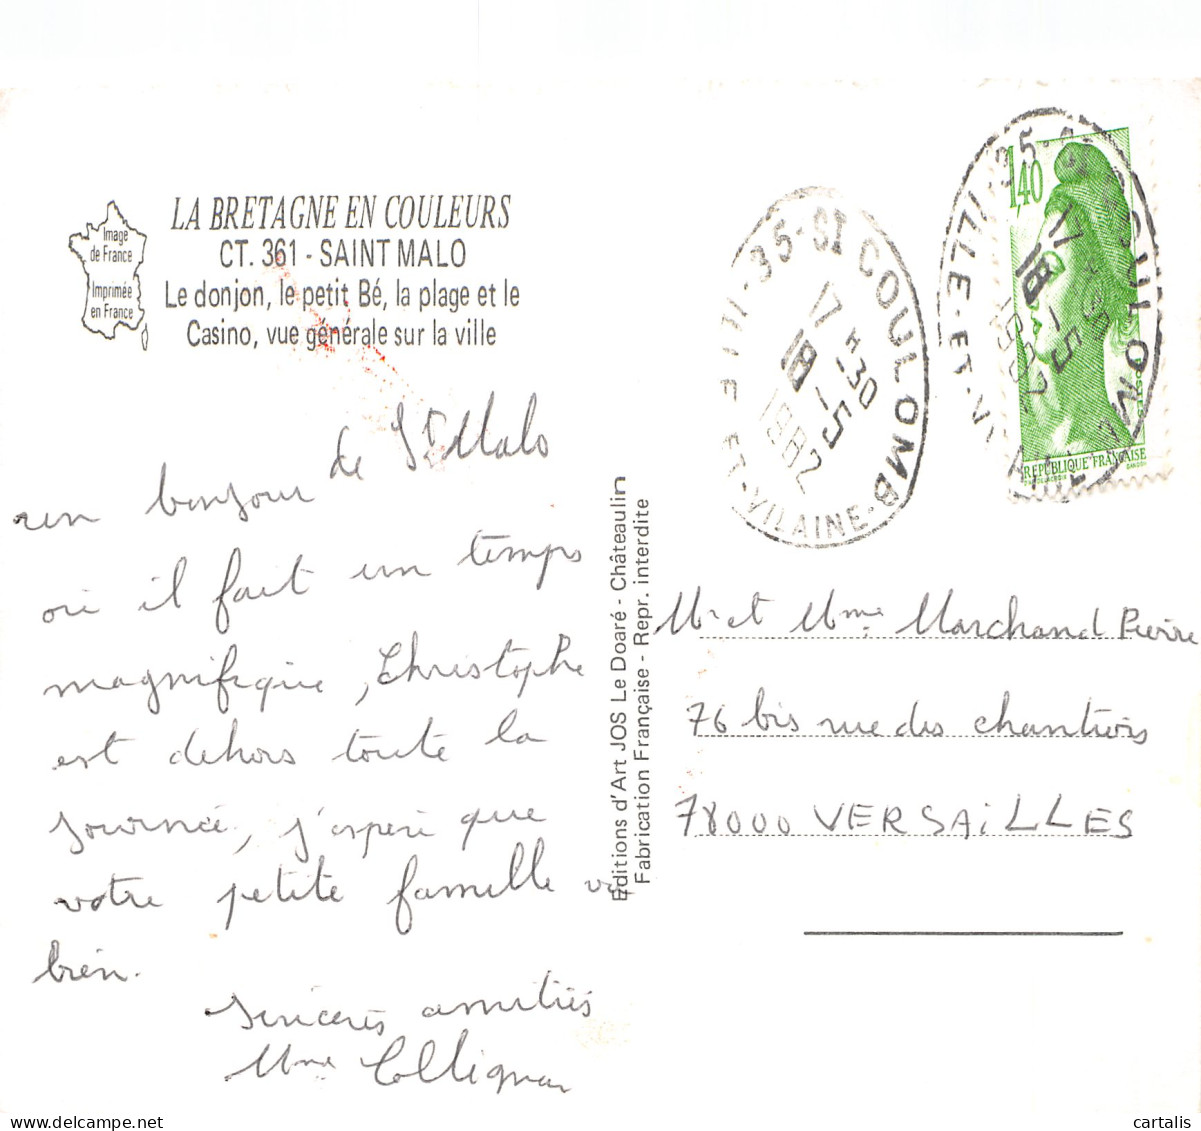 Image
de France
Imprimée
en France
LA BRETAGNE EN COULEURS
CT. 361 - SAINT MALO
Le donjon, le petit Bé, la plage et le
Casino, vue générale sur la ville
un bonjour de St Malo
où il fait un temps
magnifique, Christophe
est dehors toute la
journée, j'espère que
votre petite famille va
bien.
Sincères amitiés
Mme Collignon
Editions d'Art JOS Le Doaré - Châteaulin
Fabrication Française - Repr. interdite
35-ST COULOMB
ILLE-ET-VILAINE
17 H 30
18 -5
1982
1,40
POSTES
REPUBLIQUE FRANÇAISE
35-ST COULOMB
ILLE-ET-VILAINE
17 H 30
18 -5
1982
Mr et Mme Marchand Pierre
76 bis rue des chantiers
78000 VERSAiLLES
cartalis